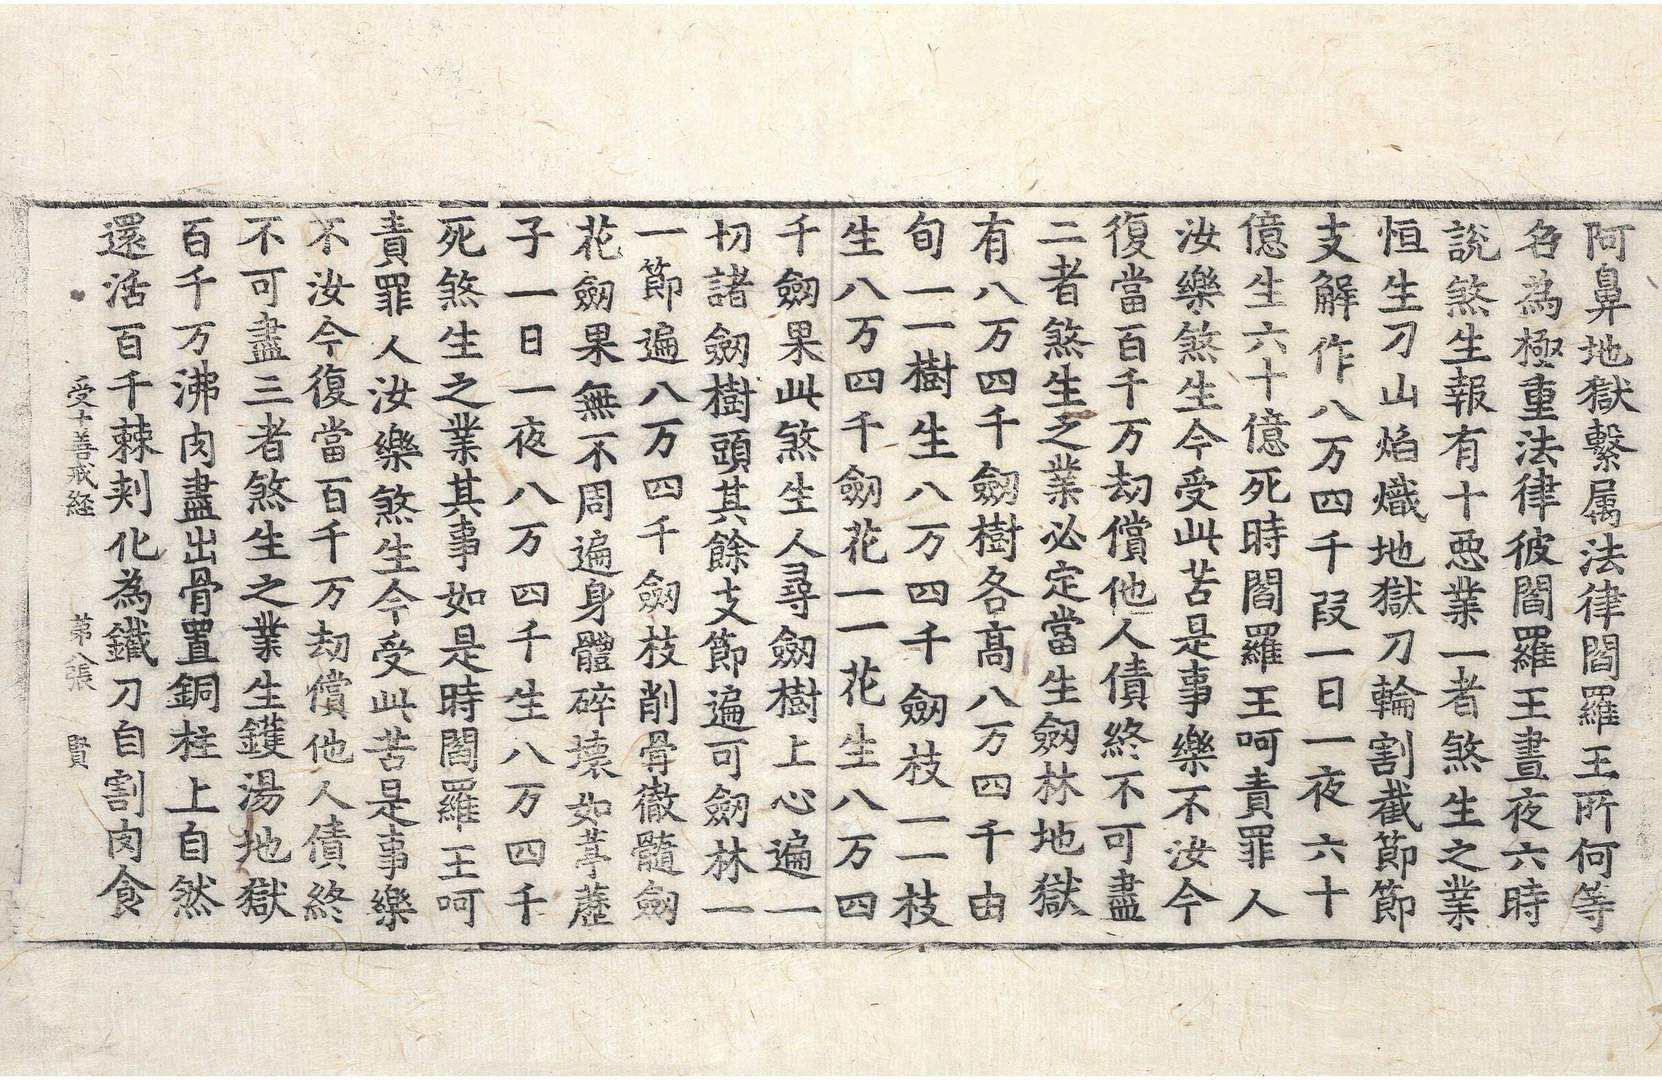 阿鼻地獄繫属法律閻羅王所何等
名為極重法律彼閻羅王晝夜六時
說煞生報有十惡業一者煞生之業
恒生刀山焰熾地獄刀輪割截節節
支解作八万四千段一日一夜六十
億生六十億死時閻羅王呵責罪人
汝樂煞生今受此苦是事樂不汝今
復當百千万劫償他人債終不可盡
二者煞生之業必定當生劒林地獄
有八万四千劒樹各高八万四千由
旬一一樹生八万四千劒枝一一枝
生八万四千劒花一一花生八万四
千劒果此煞生人尋劒樹上心遍一
切諸劒樹頭其餘支節遍可劒林一
一節遍八万四千劒枝削骨徹髓劒
花劒果無不周遍身體碎壞如葶藶
子一日一夜八万四千生八万四千
死煞生之業其事如是時閻羅王呵
責罪人汝樂煞生今受此苦是事樂
不汝今復當百千万劫償他人債終
不可盡三者煞生之業生鑊湯地獄
百千万沸肉盡出骨置銅柱上自然
還活百千棘刾化為鐵刀自割肉食
受十善戒経 第八張 賢